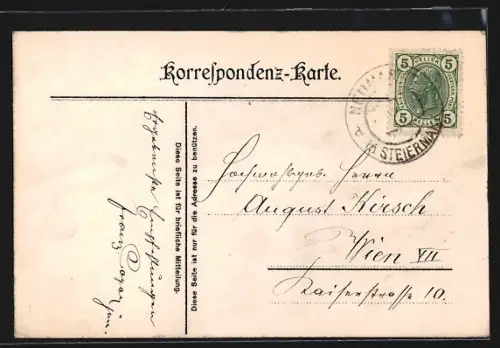 Korrespondenz-Karte.
5 HELLER 5
5 5
NEUMA
STEIERMA
Ergebenste Empfehlungen
Franz
jun.
Diese Seite ist für briefliche Mitteilung.
Diese Seite ist nur für die Adresse zu benützen.
Hochwohlgeb. Herrn
August Kirsch
Wien VII
Kaiserstrasse 10.